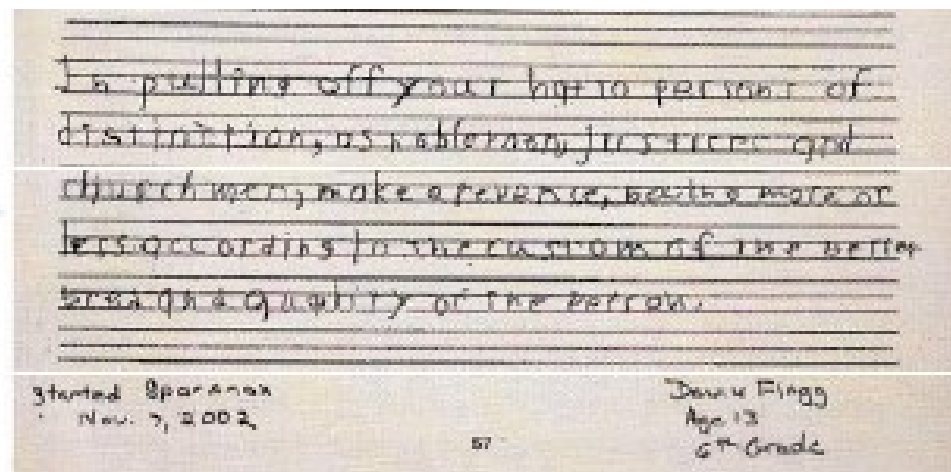 In pulling off your hat to persons of
distinction, as noblemen, justices and
churchmen, make a reverence, bowing more or
less according to the custom of the better
bred and quality of the person.
Started
Nov. 7, 2002
Flagg
Age 13
6th Grade
57